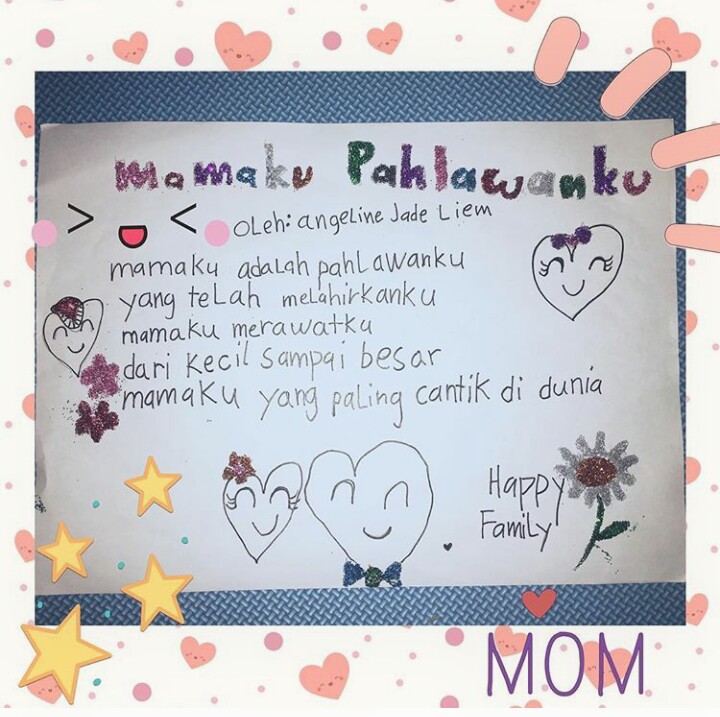 Mamaku Pahlawanku
OLeh: angeline Jade Liem
mamaku adaLah pahLawanku
yang teLah meLahirkanku
mamaku merawatku
dari kecil sampai besar
mamaku yang paLing cantik di dunia
Happy
Family
MOM